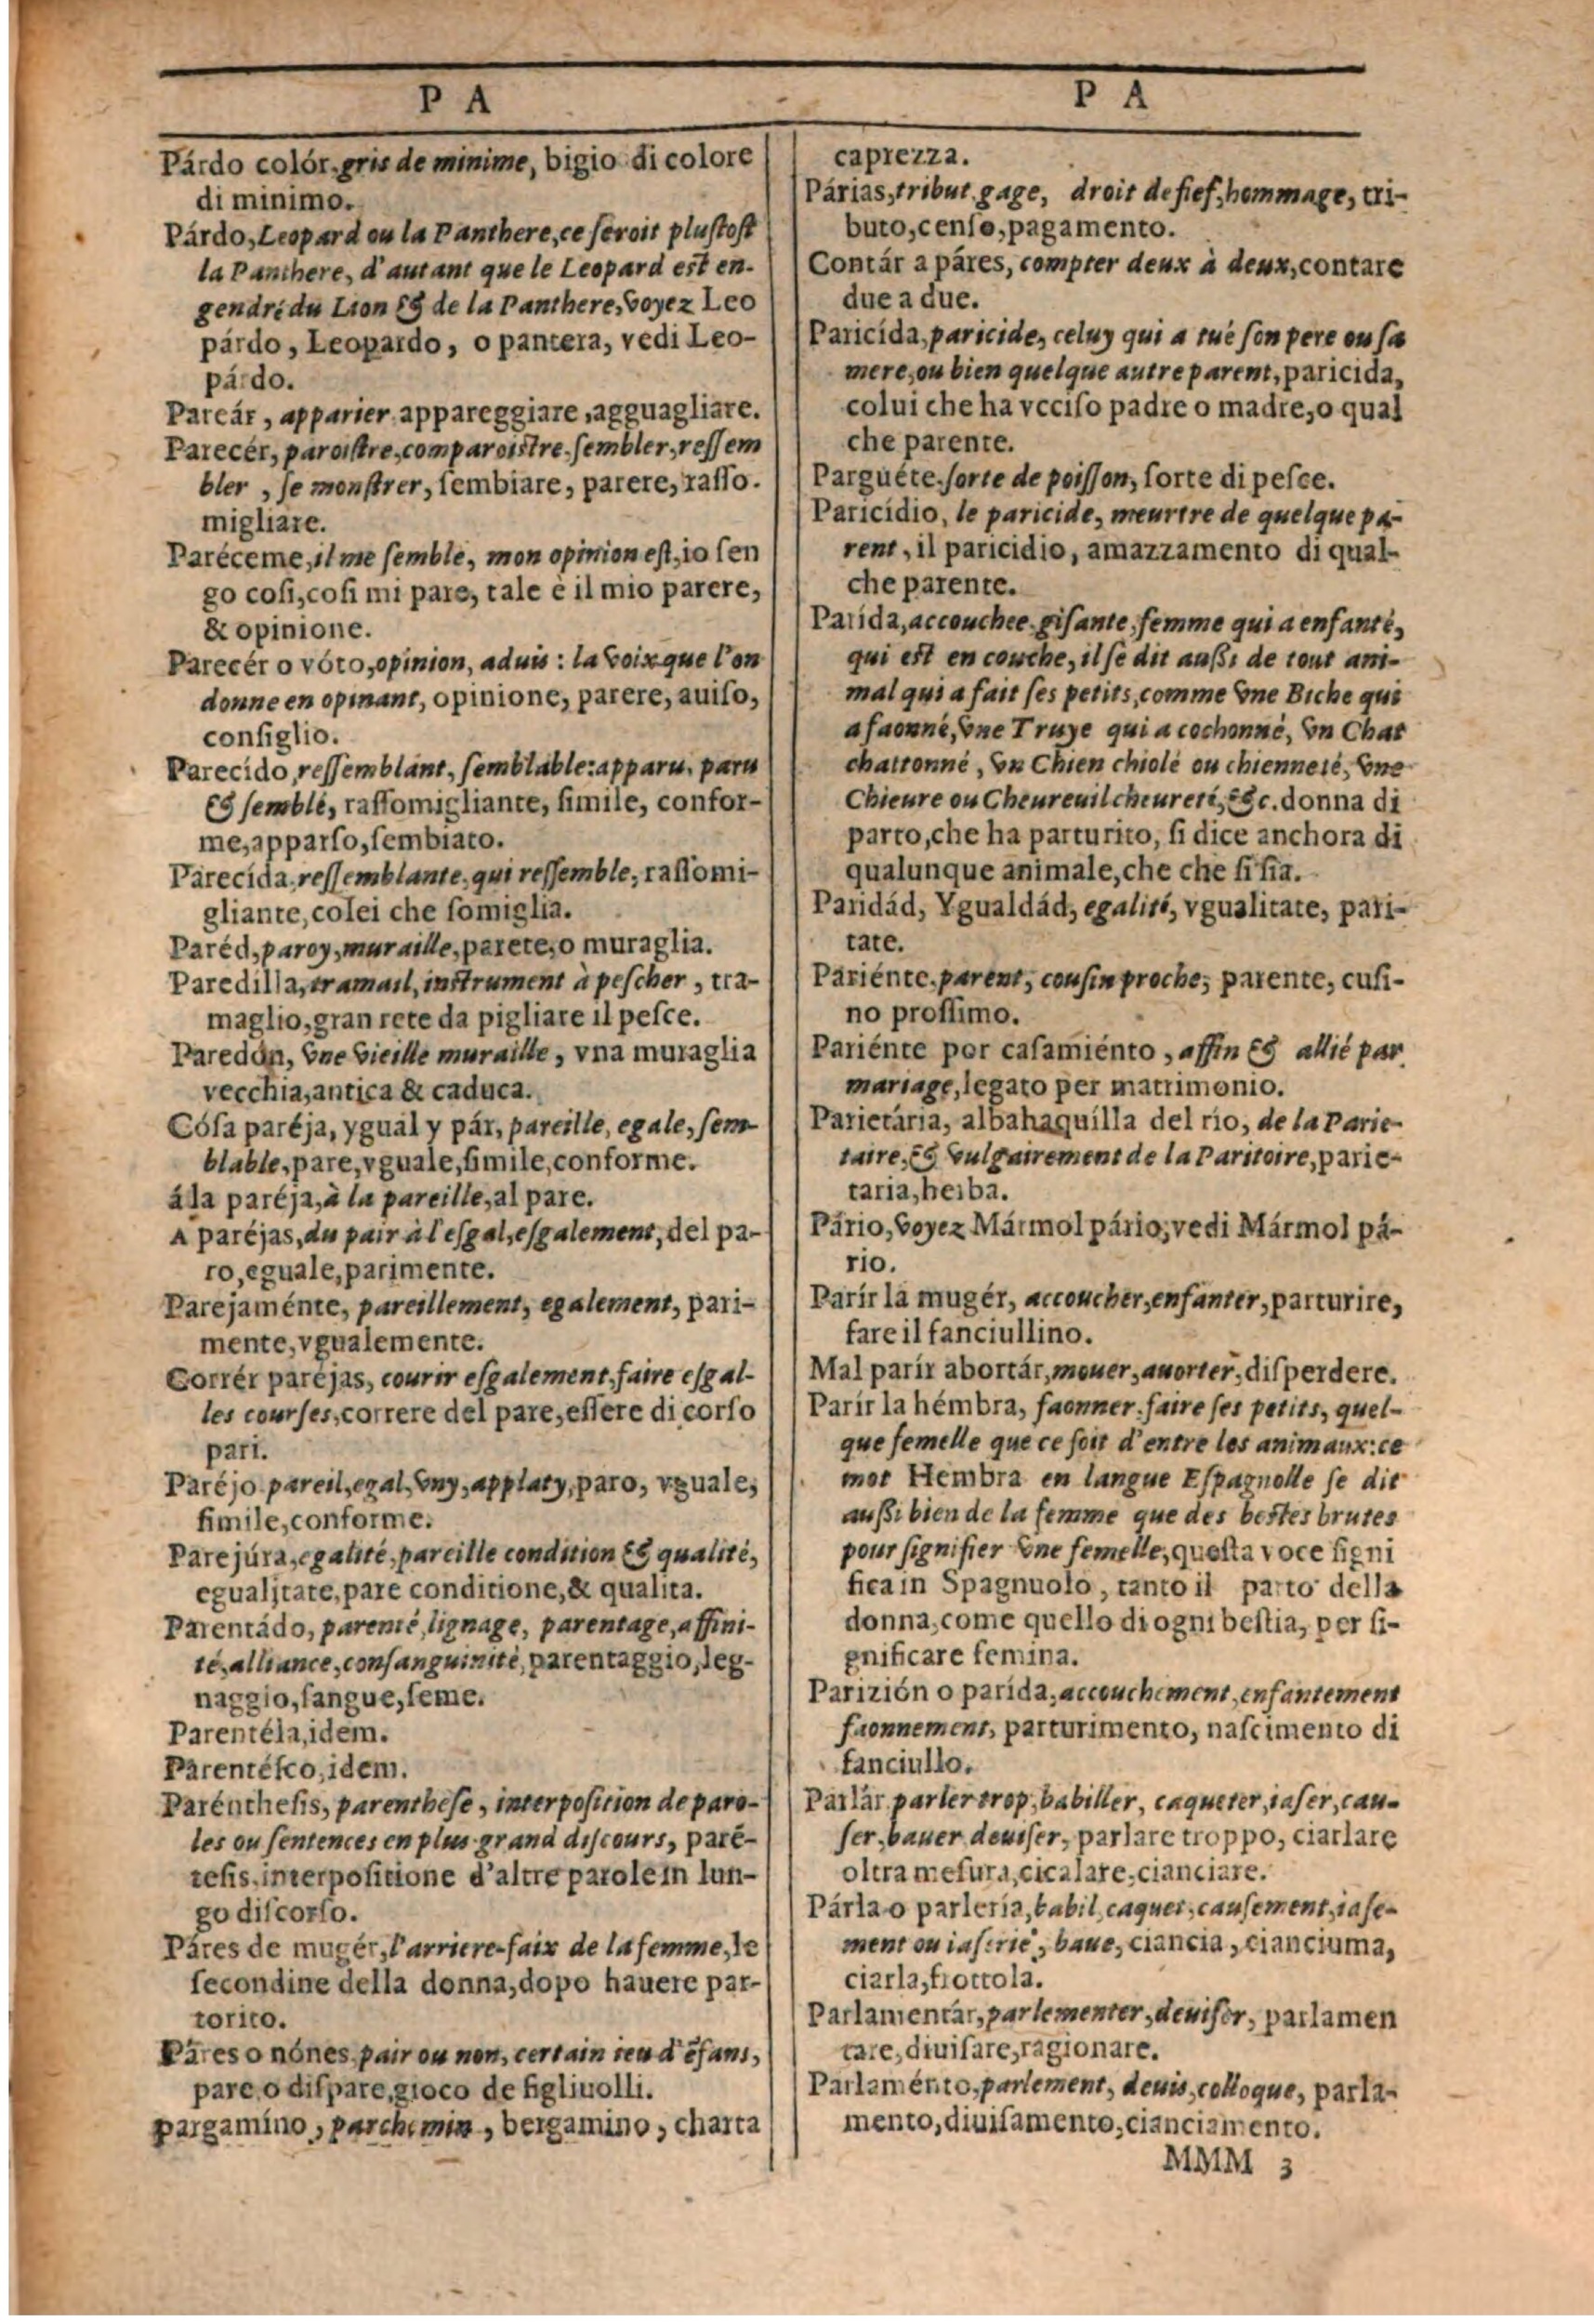 P A
Párdo colór, gris de minime, bigio di colore
di minimo.
Párdo, Leopard ou la Panthere, ce seroit plustost
la Panthere, d'autant que le Leopard est en-
gendré du Lion & de la Panthere, voyez Leo
párdo, Leopardo, o pantera, vedi Leo-
párdo.
Pareár, apparier appareggiare, agguagliare.
Parecér, paroistre, comparoistre, sembler, ressem
bler, se monstrer, sembiare, parere, rasso.
migliare.
Paréceme, il me semble, mon opinion est, io sen
go cosi, cosi mi pare, tale è il mio parere,
& opinione.
Parecér o vóto, opinion, aduis : la voix que l'on
donne en opinant, opinione, parere, auiso,
consiglio.
Parecído, ressemblant, semblable: apparu, paru
& semblé, rassomigliante, simile, confor-
me, apparso, sembiato.
Parecída, ressemblante, qui ressemble, rassomi-
gliante, colei che somiglia.
Paréd, paroy, muraille, parete, o muraglia.
Paredilla, tramail, instrument à pescher, tra-
maglio, gran rete da pigliare il pesce.
Paredón, vne vieille muraille, vna muraglia
vecchia, antica & caduca.
Cósa paréja, ygual y pár, pareille, egale, sem-
blable, pare, vguale, simile, conforme.
á la paréja, à la pareille, al pare.
A paréjas, du pair à l'esgal, esgalement, del pa-
ro, eguale, parimente.
Parejaménte, pareillement, egalement, pari-
mente, vgualemente.
Corrér paréjas, courir esgalement, faire esgal-
les courses, correre del pare, essere di corso
pari.
Paréjo pareil, egal, vny, applaty, paro, vguale,
simile, conforme.
Parejúra, egalité, pareille condition & qualité,
egualitate, pare conditione, & qualita.
Parentádo, parenté, lignage, parentage, affini-
té, alliance, consanguinité, parentaggio, leg-
naggio, sangue, seme.
Parentéla, idem.
Parentésco, idem.
Parénthesis, parenthese, interposition de paro-
les ou sentences en plus grand discours, paré-
tesis, interpositione d'altre parole in lun-
go discorso.
Páres de mugér, l'arriere-faix de la femme, le
secondine della donna, dopo hauere par-
torito.
Páres o nónes, pair ou non, certain ieu d'ẽfans,
pare o dispare, gioco de figliuolli.
pargamíno, parchemin, bergamino, charta
P A
caprezza.
Párias, tribut, gage, droit de fief, hommage, tri-
buto, censo, pagamento.
Contár a páres, compter deux à deux, contare
due a due.
Paricída, paricide, celuy qui a tué son pere ou sa
mere, ou bien quelque autre parent, paricida,
colui che ha vcciso padre o madre, o qual
che parente.
Parguéte, sorte de poisson, sorte di pesce.
Paricídio, le paricide, meurtre de quelque pa-
rent, il paricidio, amazzamento di qual-
che parente.
Parída, accouchee, gisante, femme qui a enfanté,
qui est en couche, il se dit aussi de tout ani-
mal qui a fait ses petits, comme vne Biche qui
a faonné, vne Truye qui a cochonné, vn Chat
chattonné, vn Chien chiolé ou chienneté, vne
Chieure ou Cheureuil cheureté, &c. donna di
parto, che ha parturito, si dice anchora di
qualunque animale, che che si sia.
Paridád, Ygualdád, egalité, vgualitate, pari-
tate.
Pariénte, parent, cousin proche, parente, cusi-
no prossimo.
Pariénte por casamiénto, affin & allié par
mariage, legato per matrimonio.
Parietária, albahaquílla del rio, de la Parie-
taire, & vulgairement de la Paritoire, parie-
taria, herba.
Pário, voyez Mármol pário, vedi Mármol pá-
rio.
Parír la mugér, accoucher, enfanter, parturire,
fare il fanciullino.
Mal parír abortár, mouer, auorter, disperdere.
Parír la hémbra, faonner, faire ses petits, quel-
que femelle que ce soit d'entre les animaux: ce
mot Hembra en langue Espagnolle se dit
aussi bien de la femme que des bestes brutes
pour signifier vne femelle, questa voce signi
fica in Spagnuolo, tanto il parto della
donna, come quello di ogni bestia, per si-
gnificare femina.
Parizión o parída, accouchement, enfantement
faonnement, parturimento, nascimento di
fanciullo.
Parlár parler trop, babiller, caqueter, iaser, cau-
ser, bauer deuiser, parlare troppo, ciarlare
oltra mesura, cicalare, cianciare.
Párla o parlería, babil, caquet, causement, iase-
ment ou iaserie, baue, ciancia, cianciuma,
ciarla, frottola.
Parlamentár, parlementer, deuiser, parlamen
tare, diuisare, ragionare.
Parlaménto, parlement, deuis, colloque, parla-
mento, diuisamento, cianciamento.
MMM 3